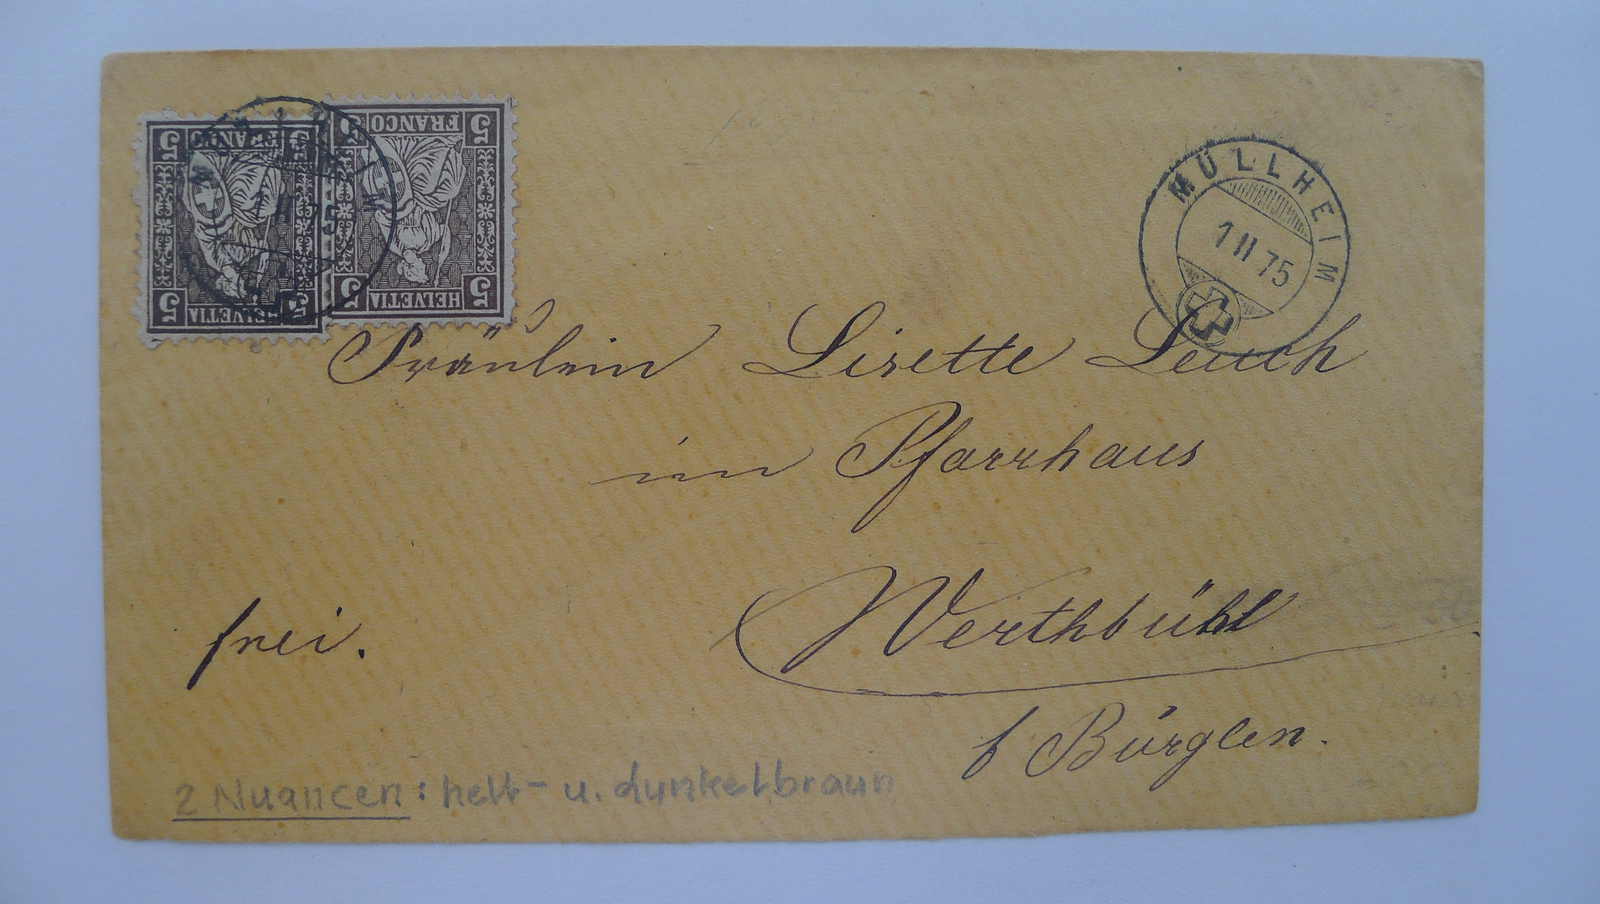 5 FRANCO 5
5 HELVETIA 5
5 FRANCO 5
5 HELVETIA 5
MÜLLHEIM
1 II 75
Fräulein Lisette Leuch
im Pfarrhaus
Werthbühl
frei.
b Bürglen.
2 Nuancen: hell- u. dunkelbraun